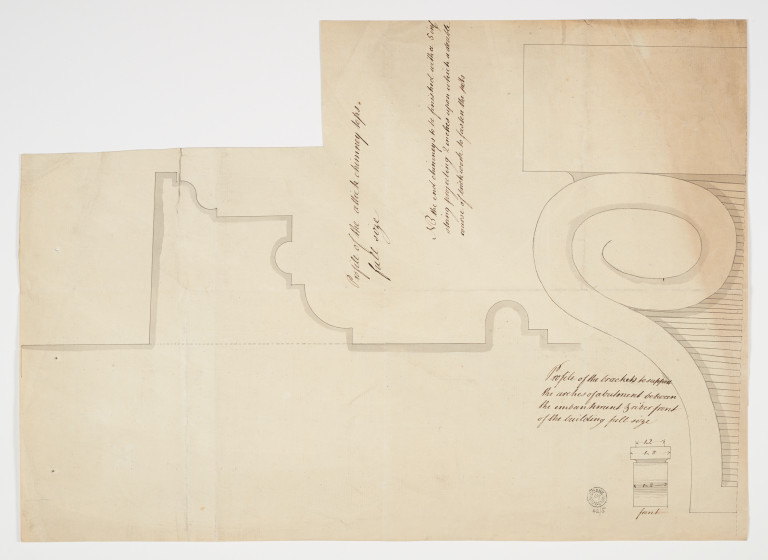 Profile of the attick chimney tops.
full size
NB the end chimneys to be finished with a
string projecting 2 inches upon which a double
of brick work to fasten the pots
Profile of the brackets to support
the arches of abutment between
the embankment & river front
of the building full size
1.2
1.5
1.2
front